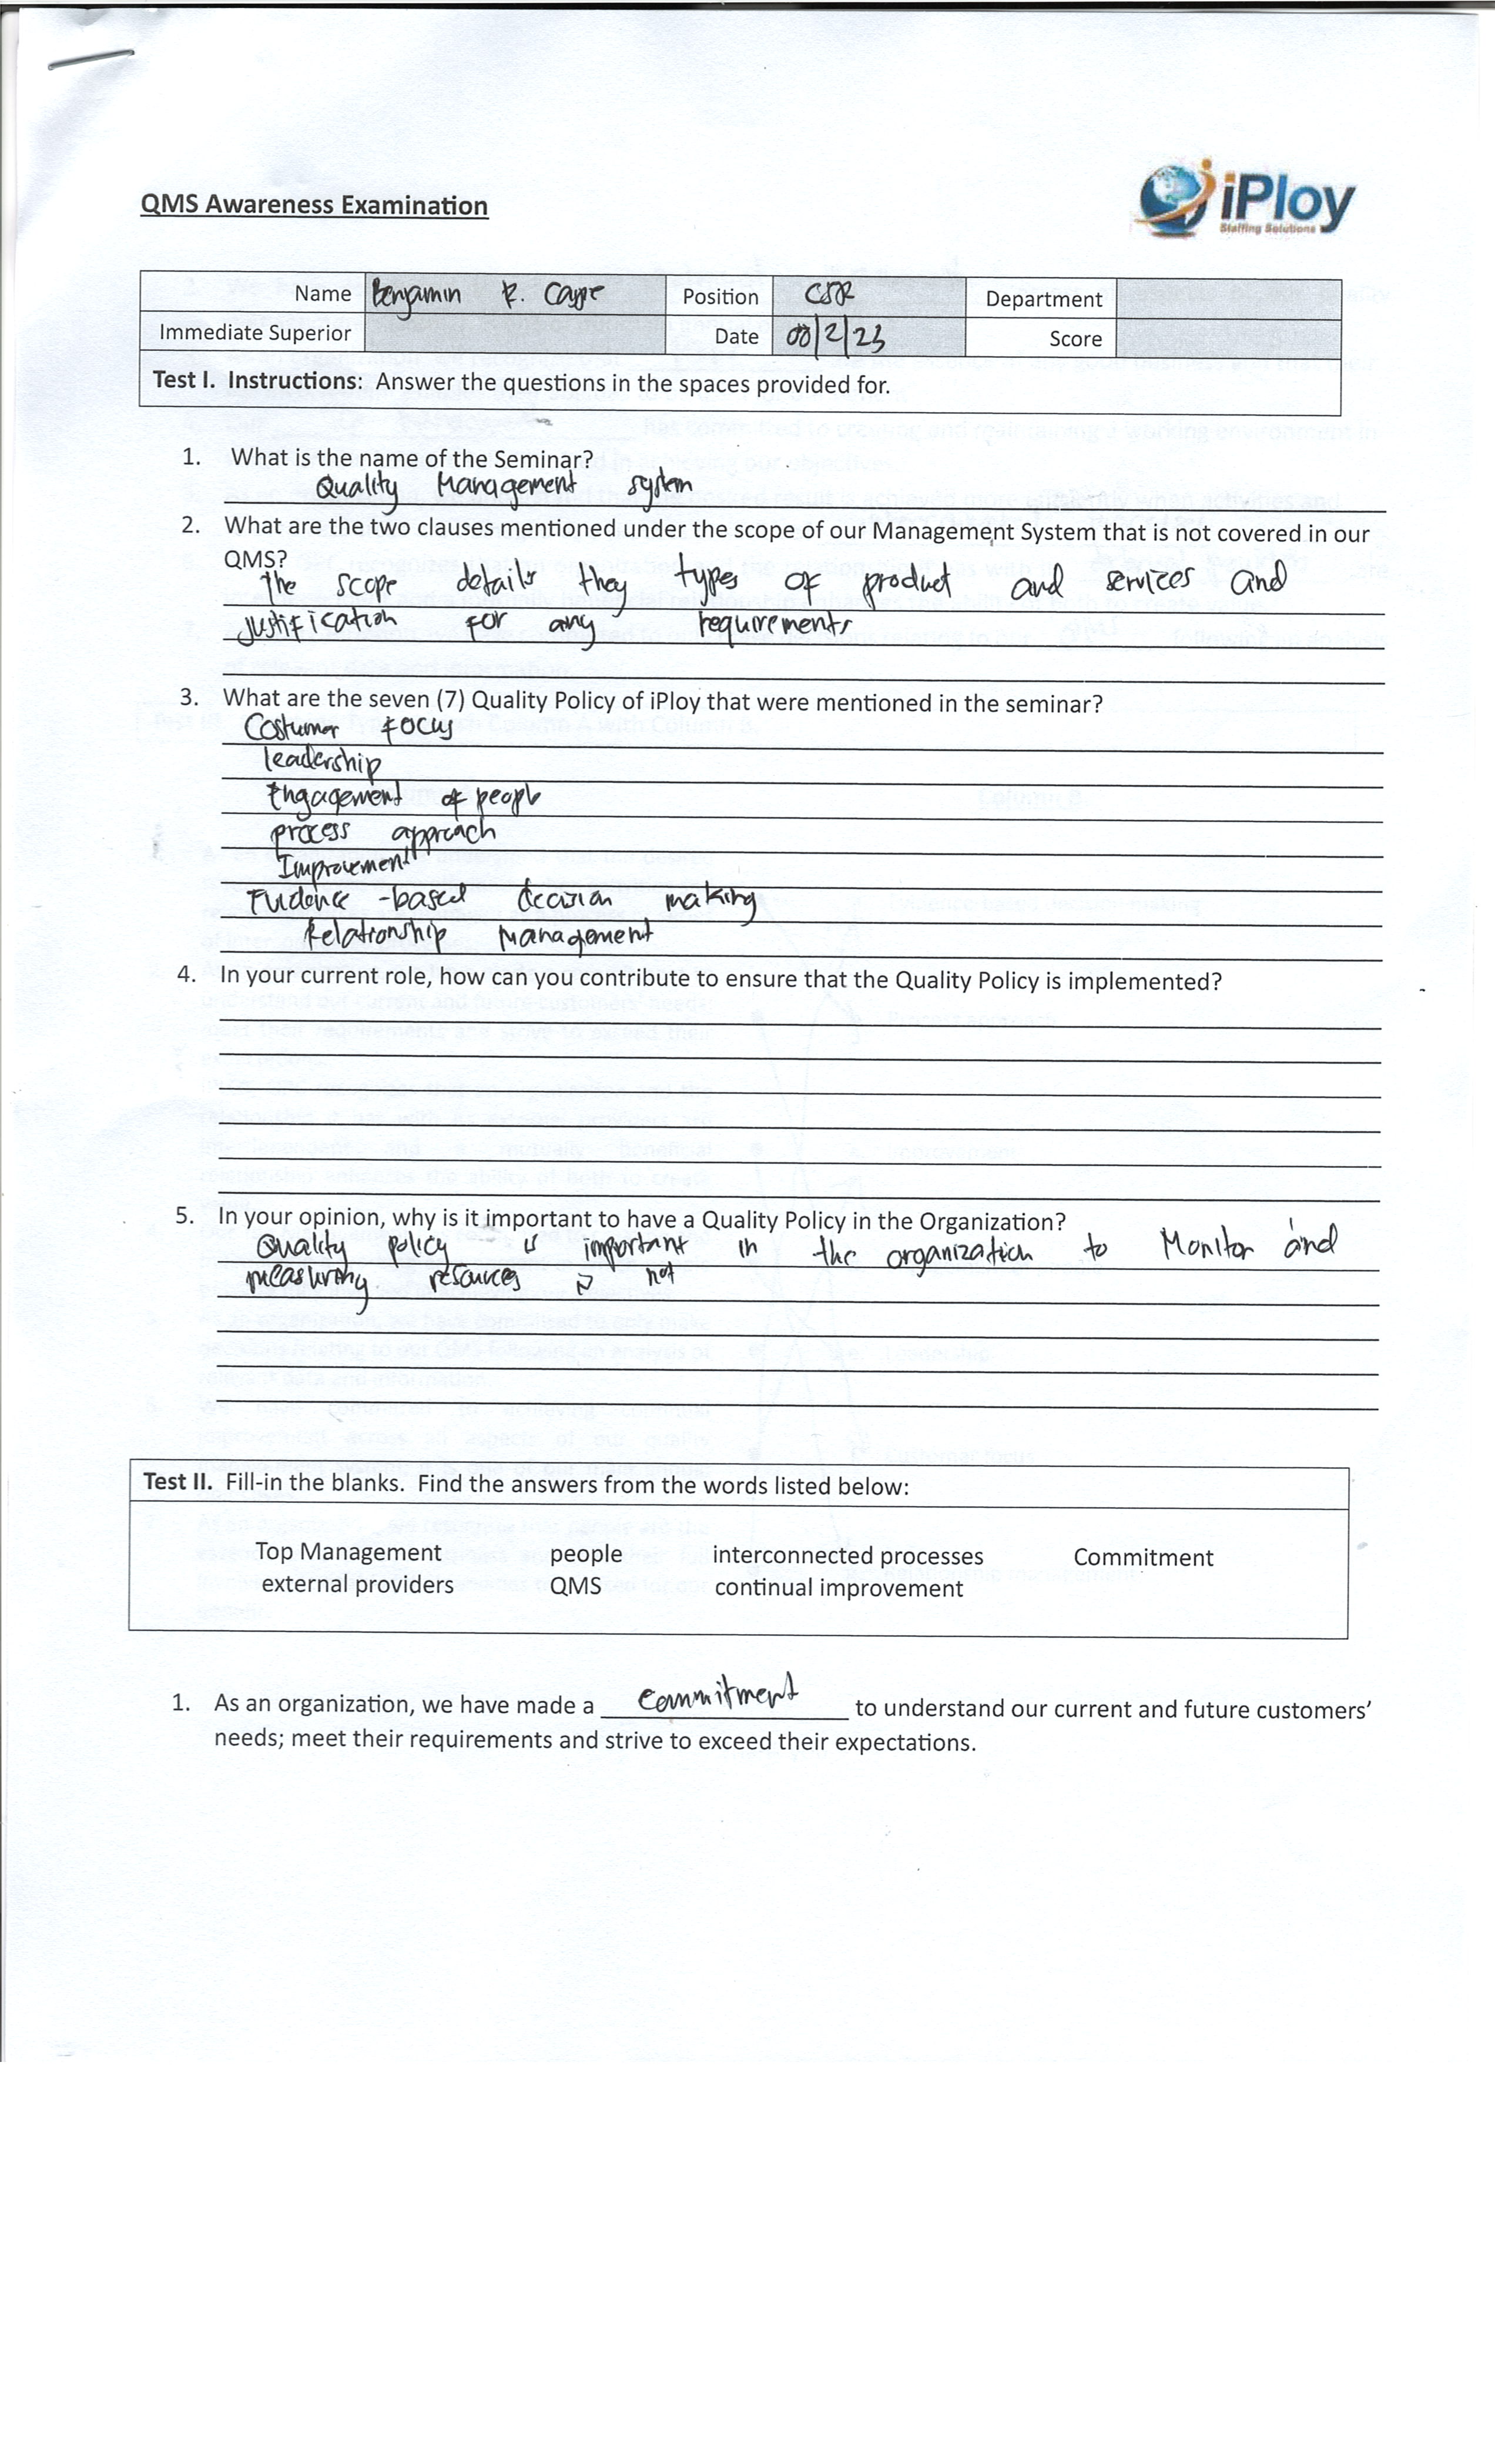 QMS Awareness Examination
iPloy
Staffing Solutions
Name Benjamin R. Position CSR Department
Immediate Superior Date 08/2/23 Score
Test I. Instructions: Answer the questions in the spaces provided for.
1. What is the name of the Seminar?
Quality Management system
2. What are the two clauses mentioned under the scope of our Management System that is not covered in our
QMS?
The scope details they types of product and services and
justification for any requirements
3. What are the seven (7) Quality Policy of iPloy that were mentioned in the seminar?
Costumer focus
leadership
Engagement of people
process approach
Improvement
Evidence-based decision making
Relationship Management
4. In your current role, how can you contribute to ensure that the Quality Policy is implemented?
5. In your opinion, why is it important to have a Quality Policy in the Organization?
Quality policy is important in the organization to Monitor and
measuring resources is not
Test II. Fill-in the blanks. Find the answers from the words listed below:
Top Management people interconnected processes Commitment
external providers QMS continual improvement
1. As an organization, we have made a commitment to understand our current and future customers’
needs; meet their requirements and strive to exceed their expectations.